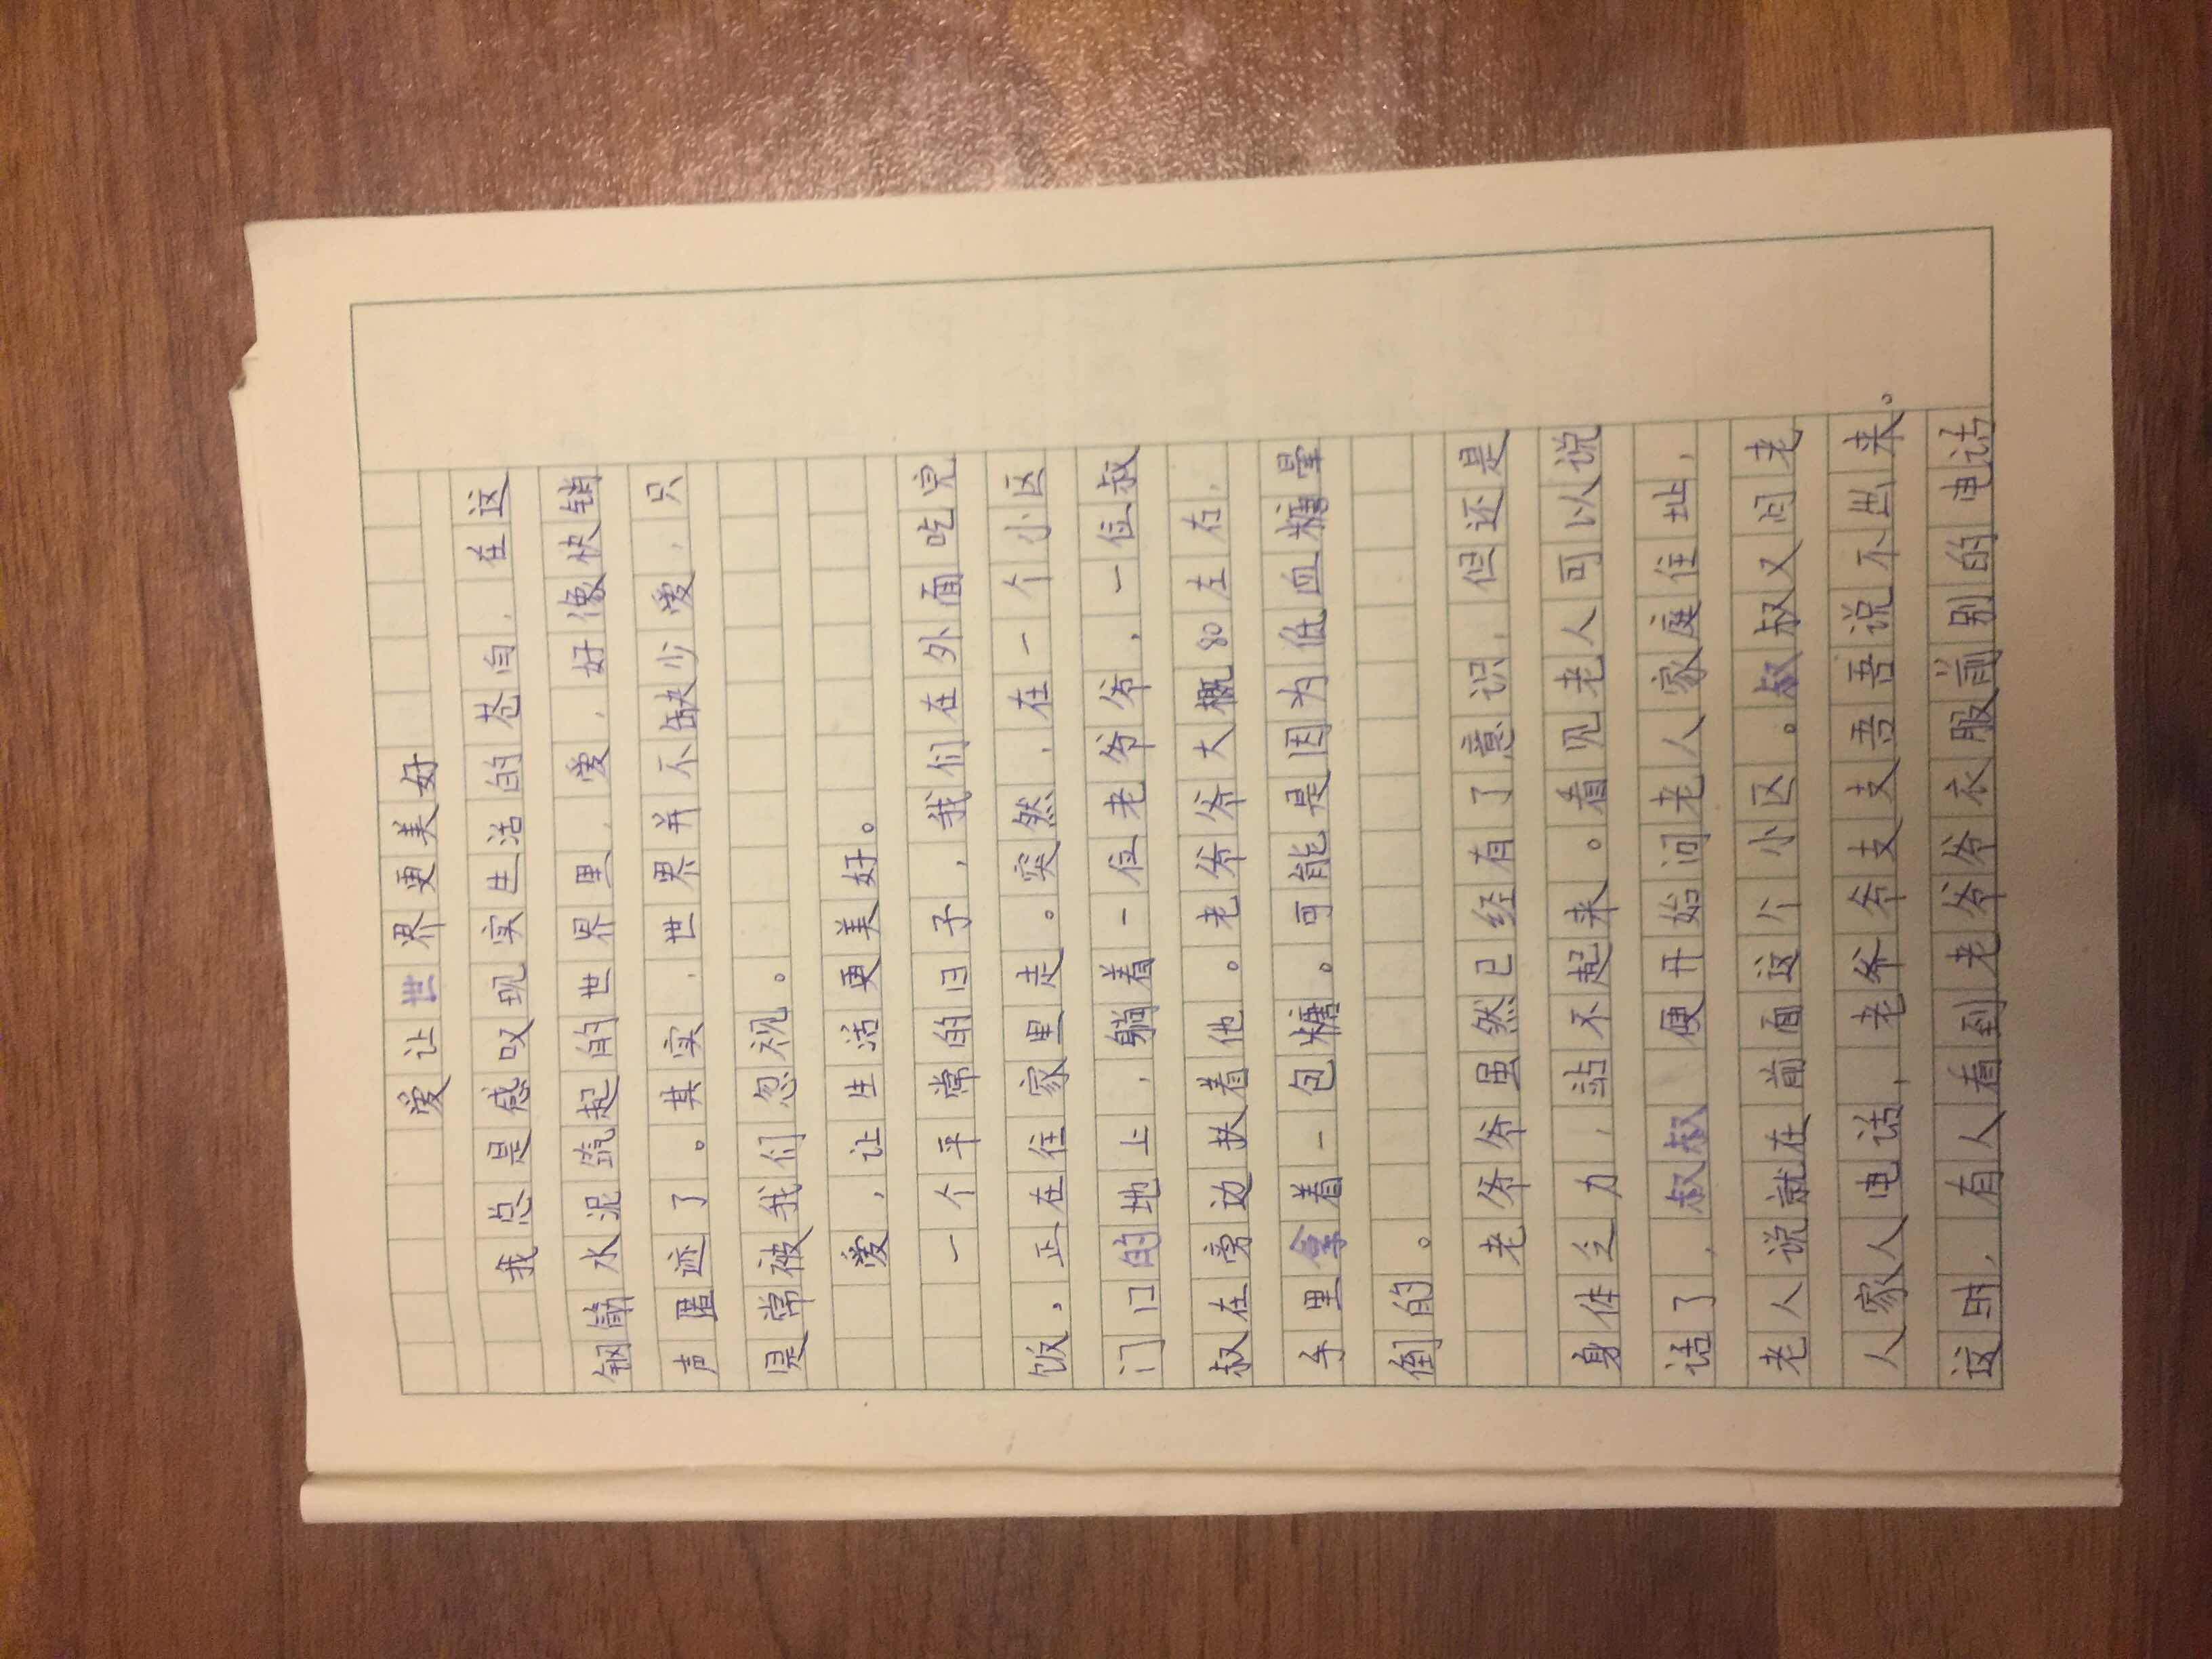 爱让世界更美好
我总是感叹现实生活的苍白，在这
钢筋水泥筑起的世界里，爱，好像快销
声匿迹了。其实，世界并不缺少爱，只
是常被我们忽视。
爱，让生活更美好。
一个平常的日子，我们在外面吃完
饭，正在往家里走。突然，在一个小区
门口的地上，躺着一位老爷爷，一位叔
叔在旁边扶着他。老爷爷大概80左右，
手里拿着一包糖。可能是因为低血糖晕
倒的。
老爷爷虽然已经有了意识，但还是
身体乏力，站不起来。看见老人可以说
话了，叔叔便开始问老人家庭住址，
老人说就在前面这个小区。叔叔又问老
人家人电话，老爷爷支支吾吾说不出来。
这时，有人看到老爷爷衣服前别的电话